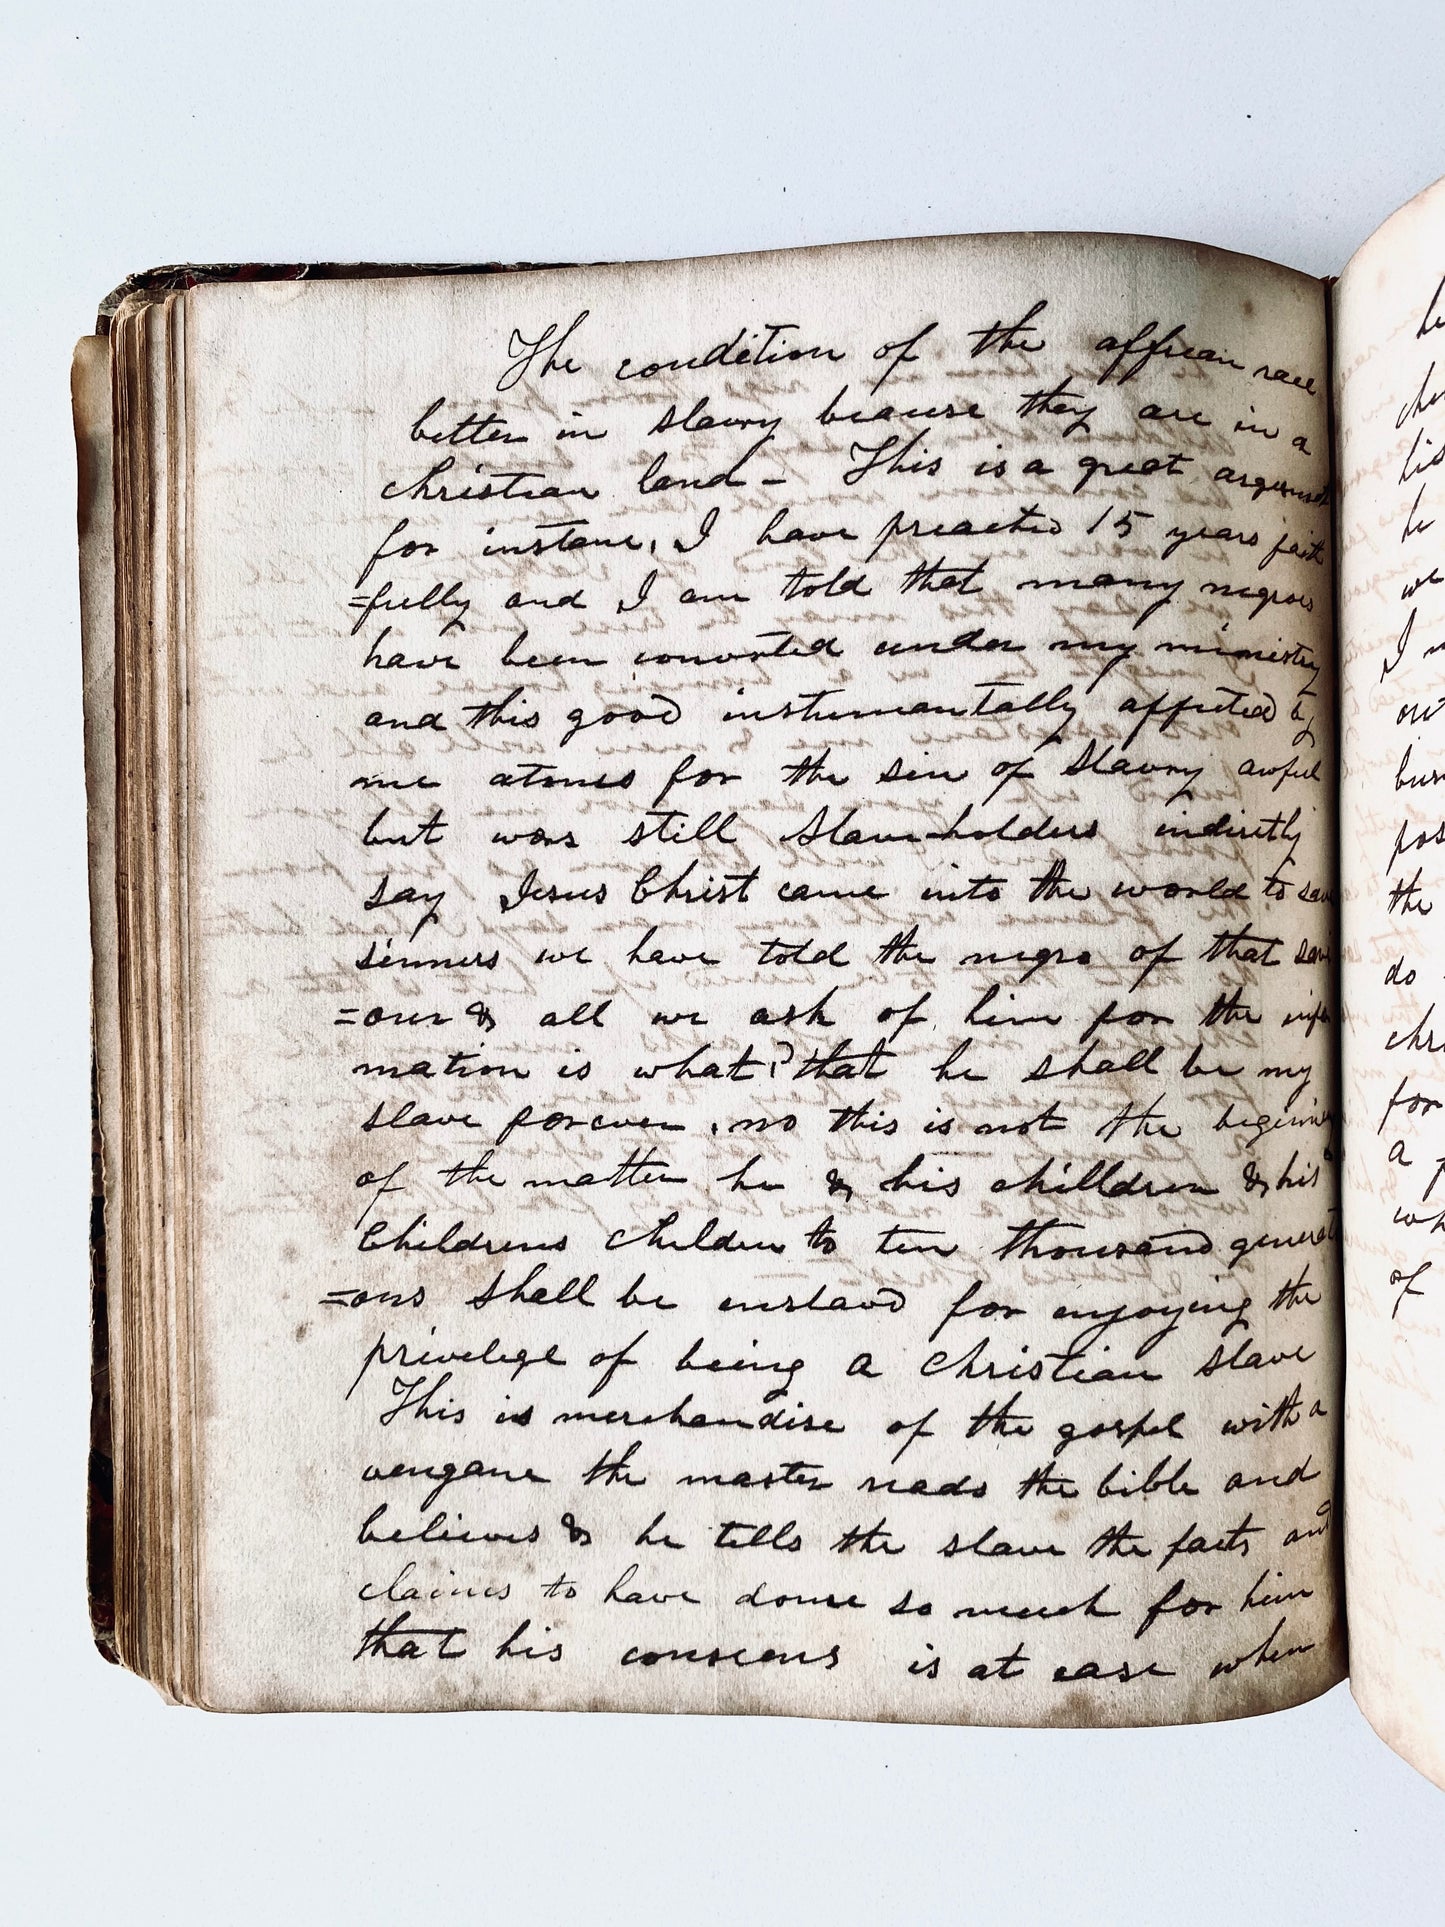 The condition of the affrican race
better in slavry beause they are in a
christian land - This is a great argument
for instane, I have preached 15 years faith
=fully and I am told that many negroes
have been convorted under my ministry
and this good instrumantally affected by
me atones for the sin of Slavry awful
but wors still Slave-holders indirectly
say Jesus Christ came into the world to save
sinners we have told the negro of that savi
=our & all we ask of him for the infor
mation is what? that he shall be my
slave forever, no this is not the begining
of the matter he & his chilldren & his
Childrens children to ten thousand generati
=ons shall be enslavd for enjoying the
privelege of being a christian slave
This is merchandise of the gospel with a
vengane the master reads the bible and
believes & he tells the slave the facts and
claims to have done so much for him
that his consciens is at ease when
he
his
he
we
I
out
the
do
for
a
of